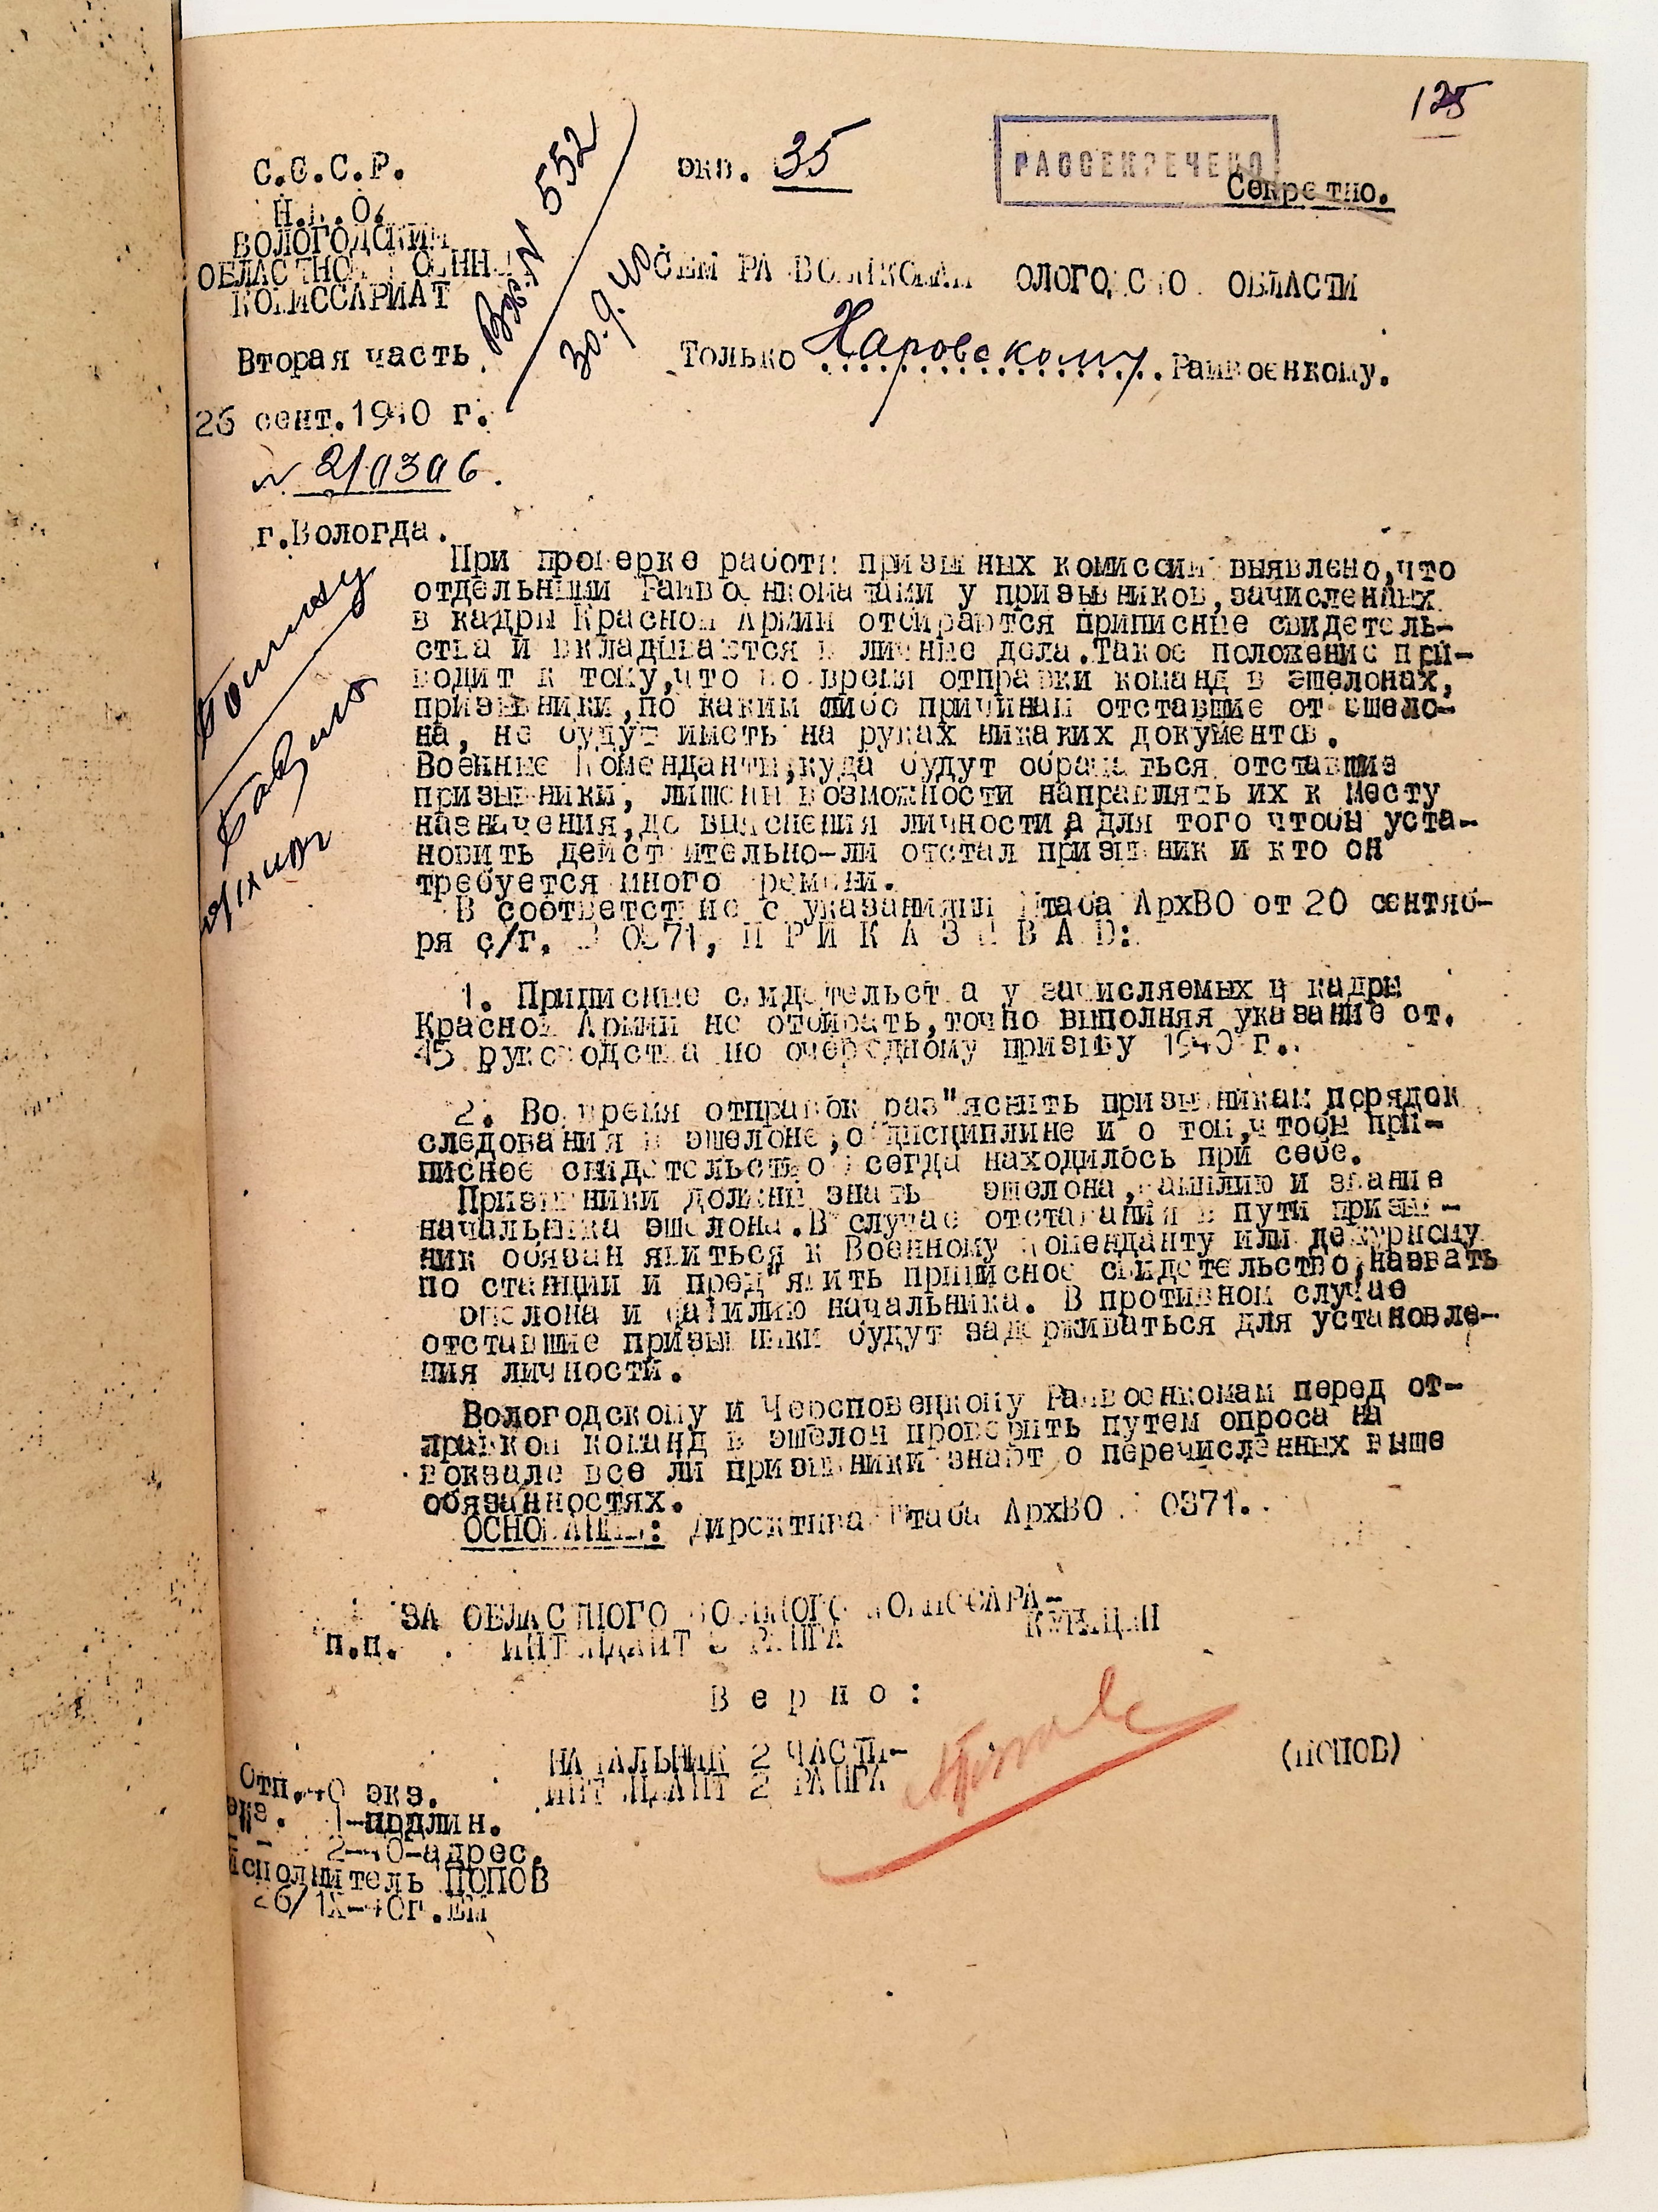 125
С.С.С.Р.
Н.К.О.
ВОЛОГОДСКИЙ
ОБЛАСТНОЙ ВОЕННЫЙ
КОМИССАРИАТ
Вторая часть.
26 сент.1940 г.
№ 2/0306.
г.Вологда.
Вх. № 552
30.9.40
экз. 35
РАССЕКРЕЧЕНО
Секретно.
ВСЕМ РАЙВОЕНКОМАМ ВОЛОГОДСКОЙ ОБЛАСТИ
Только Харовскому Райвоенкому.
При проверке работы призывных комиссий выявлено,что
отдельными Райвоенкоматами у призывников,зачисленных
в кадры Красной Армии отбираются приписные свидетель-
ства и вкладываются в личные дела.Такое положение при-
водит к тому,что во время отправки команд в эшелонах,
призывники,по каким либо причинам отставшие от эшело-
на, не будут иметь на руках никаких документов.
Военные Коменданты,куда будут обращаться отставшие
призывники, лишены возможности направлять их к месту
назначения,до выяснения личности а для того чтобы уста-
новить действительно-ли отстал призывник и кто он
требуется много времени.
В соответствие с указаниями Штаба АрхВО от 20 сентяб-
ря с/г. № 0371, П Р И К А З Ы В А Ю:
1. Приписные свидетельства у зачисляемых в кадры
Красной Армии не отбирать,точно выполняя указание ст.
45 руководства по очередному призыву 1940 г..
2. Во время отправок раз"яснить призывникам порядок
следования в эшелоне,о дисциплине и о том,чтобы при-
писное свидетельство всегда находилось при себе.
Призывники должны знать эшелона,фамилию и звание
начальника эшелона.В случае отставания в пути призыв-
ник обязан явиться к Военному Коменданту или дежурному
по станции и пред"явить приписное свидетельство,назвать
эшелона и фамилию начальника. В противном случае
отставшие призывники будут задерживаться для установле-
ния личности.
Вологодскому и Череповецкому Райвоенкомам перед от-
правкой команд в эшелон проверить путем опроса на
вокзале все ли призывники знают о перечисленных выше
обязанностях.
ОСНОВАНИЕ: Директива Штаба АрхВО № 0371.
ЗА ОБЛАСТНОГО ВОЕННОГО КОМИССАРА-
п.п. ИНТЕНДАНТ 3 РАНГА КУНИЦЫН
В е р н о :
НАЧАЛЬНИК 2 ЧАСТИ-
ИНТЕНДАНТ 2 РАНГА (ПОПОВ)
Отп.40 экз.
экз. 1-подлин.
-"- 2-40-адрес.
Исполнитель ПОПОВ
26/IX-40г.ЕМ